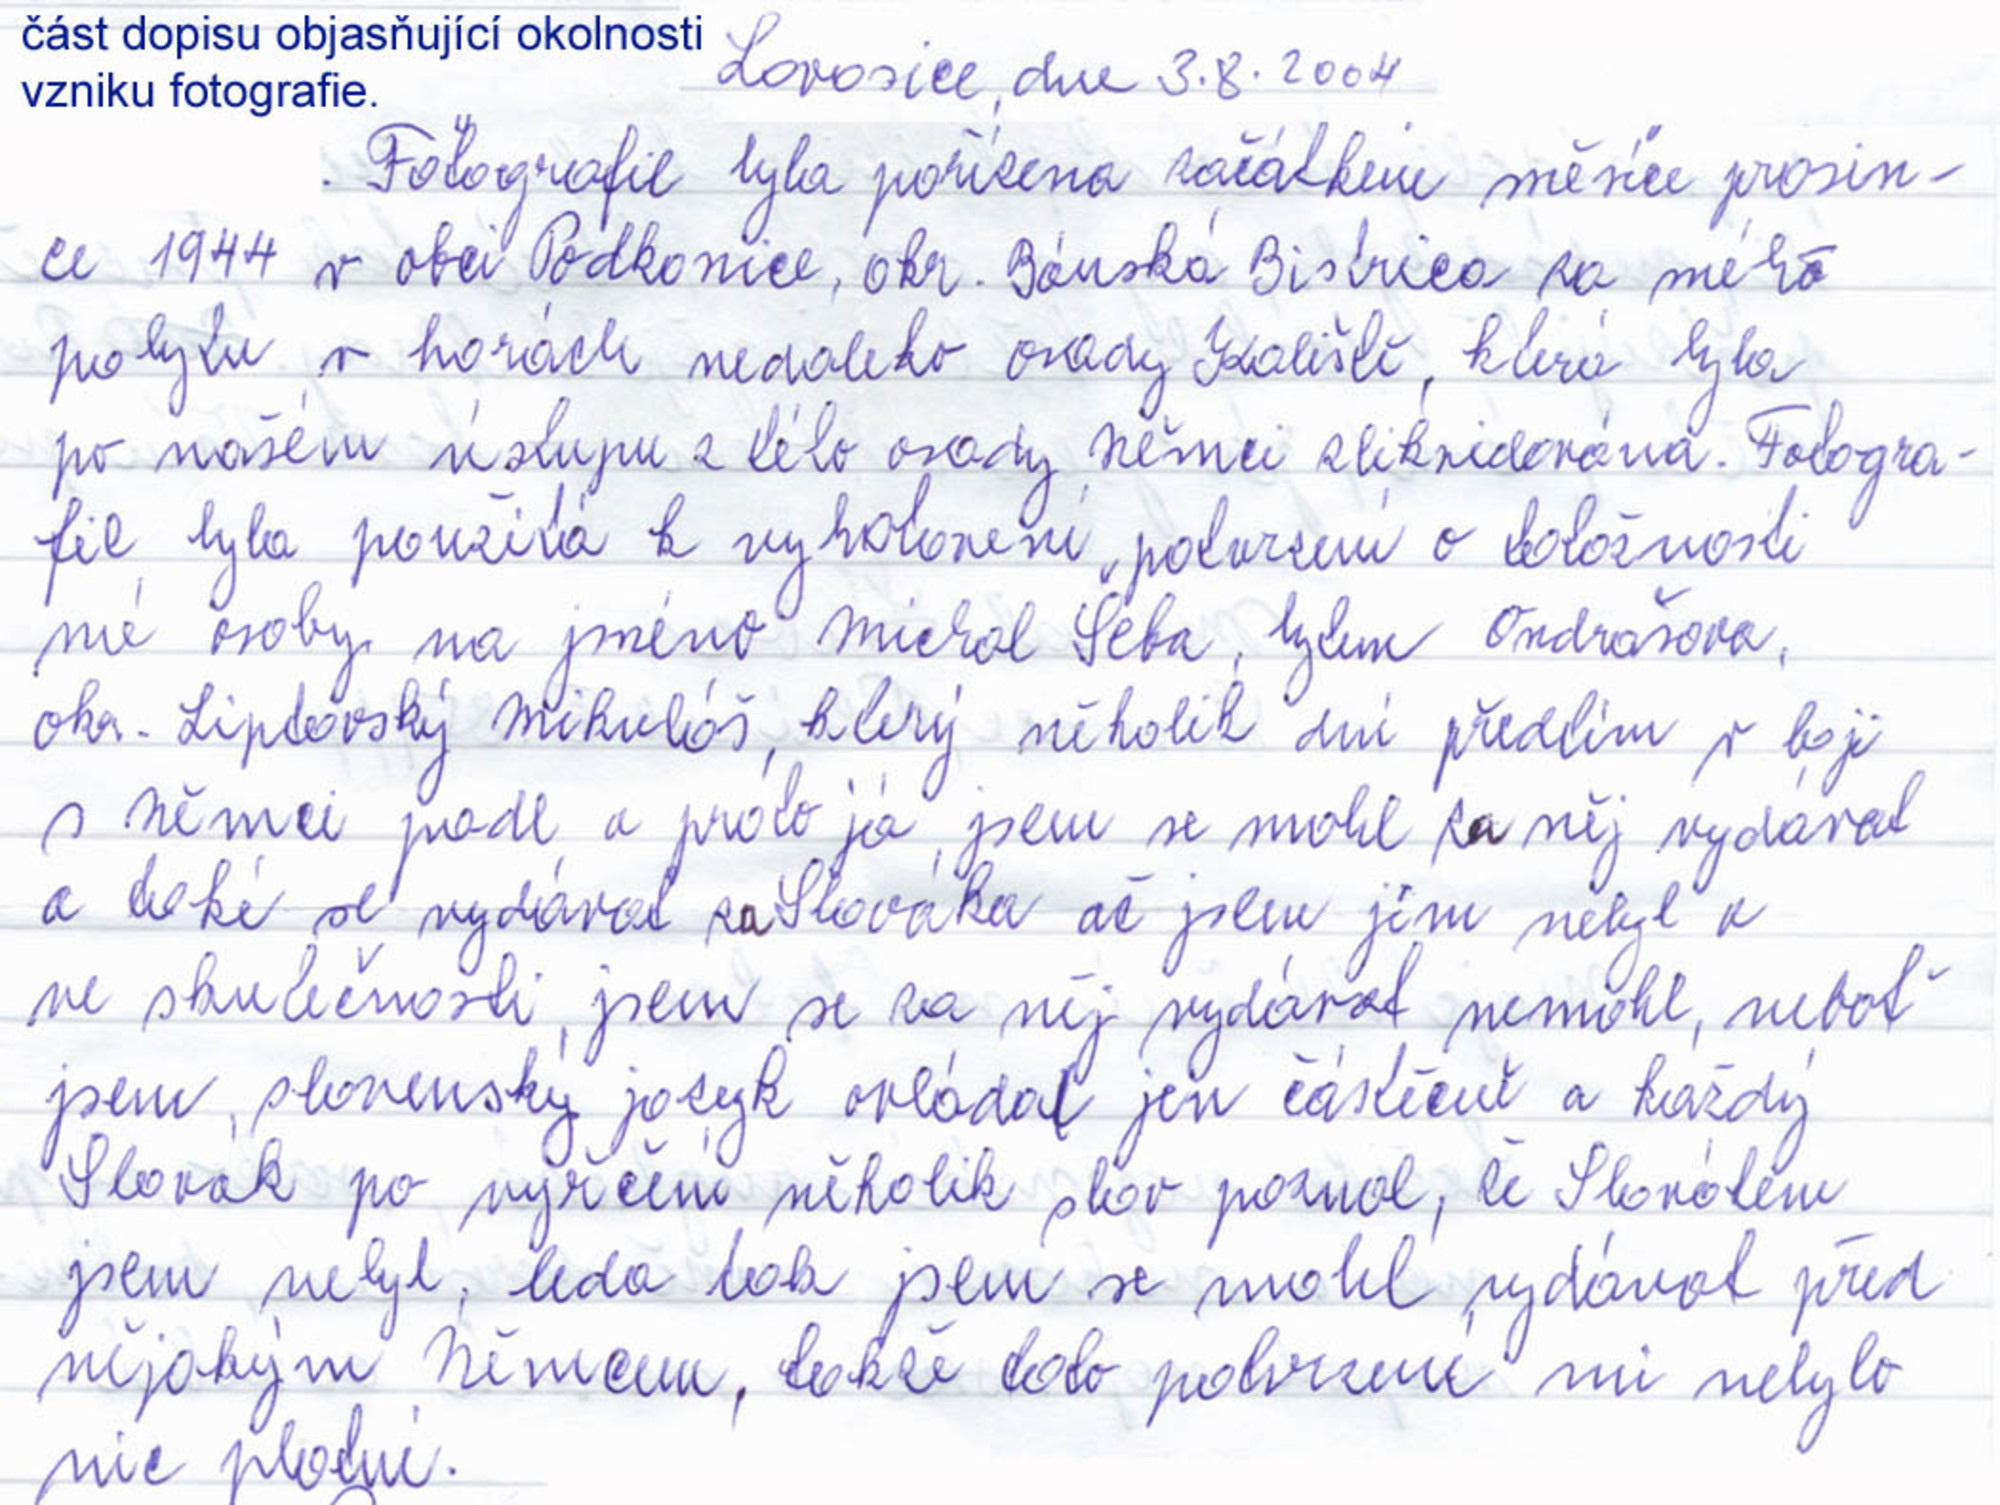 část dopisu objasňující okolnosti
vzniku fotografie.
Lovosice, dne 3.8. 2004
Fotografie byla pořízena začátkem měsíce prosin-
ce 1944 v obci Podkonice, okr. Bánská Bistrica za mého
pobytu v horách nedaleko osady Kaliště, která byla
po našém ústupu z této osady Němci zlikvidována. Fotogra-
fie byla použitá k vyhotovení „potvrzení o totožnosti
mé osoby na jméno Michal Šeba, bytem Ondrašova,
okr. Liptovský Mikuláš, který několik dní předtím v boji
s Němci padl a proto já jsem se mohl za něj vydávat
a také se vydávat za Slováka ač jsem jím nebyl a
ve skutečnosti jsem se za něj vydávat nemohl, neboť
jsem slovenský jazyk ovládal jen částěčně a každý
Slovák po vyřčení několik slov poznal, že Slovákem
jsem nebyl, leda tak jsem se mohl vydávat před
nějakým Němcem, takže toto potvrzení mi nebylo
nic platné.